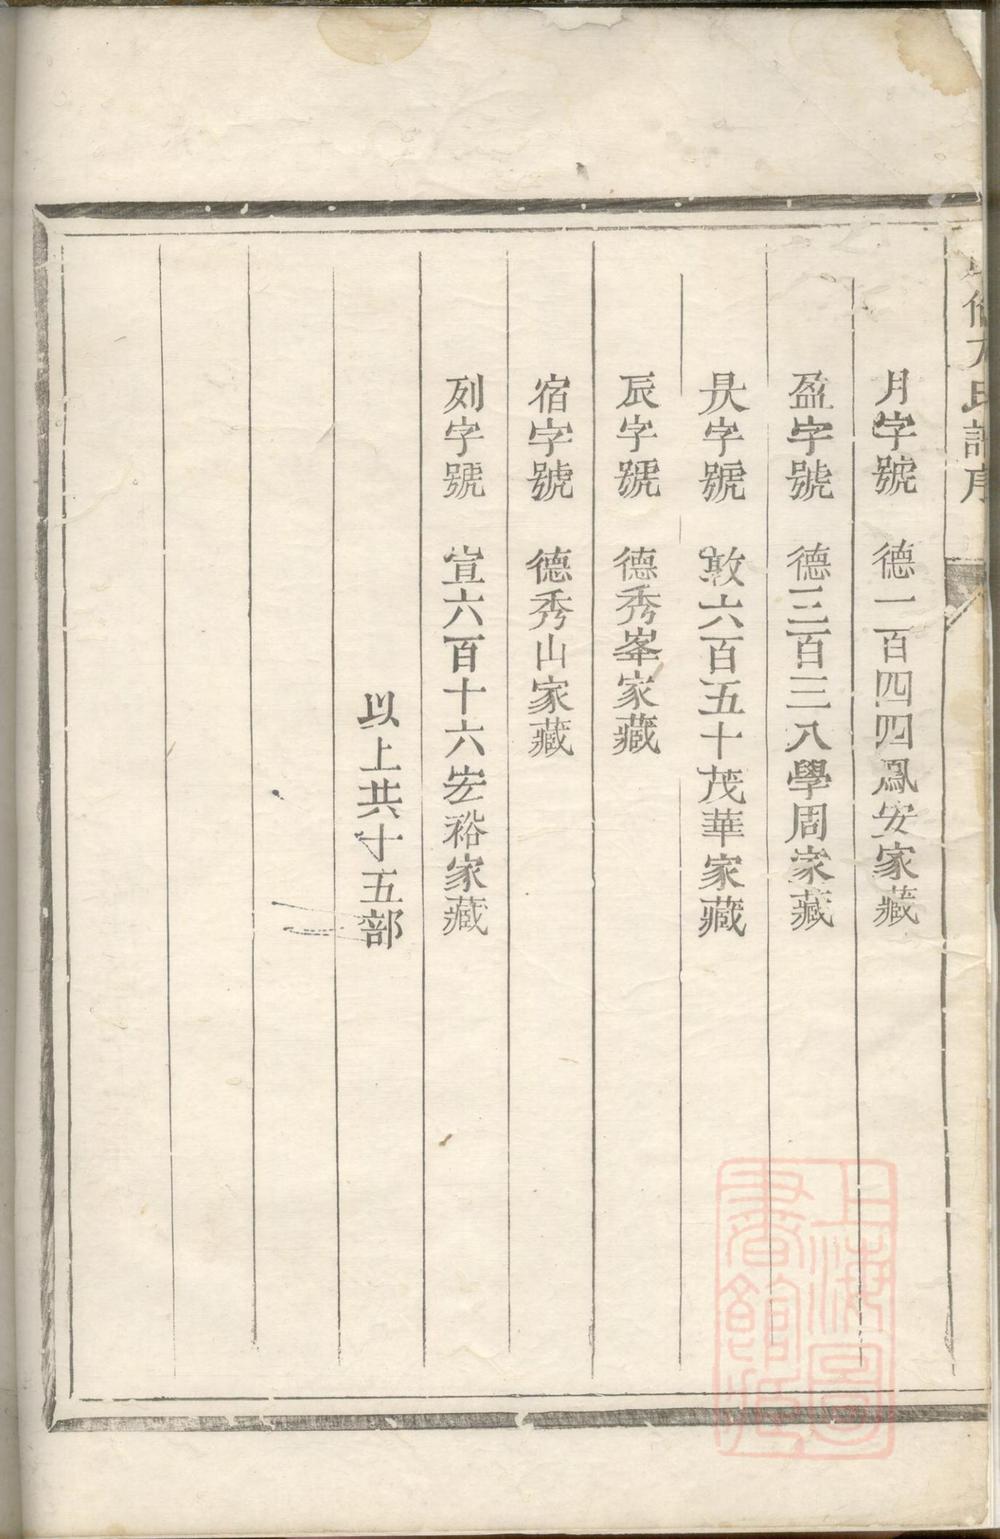 修氏譜序
月字號　德一百四四鳳安家藏
盈字號　德三百三八學周家藏
昃字號　敦六百五十茂華家藏
辰字號　德秀峯家藏
宿字號　德秀山家藏
列字號　宣六百十六宏裕家藏
以上共十五部
上海圖
書館藏